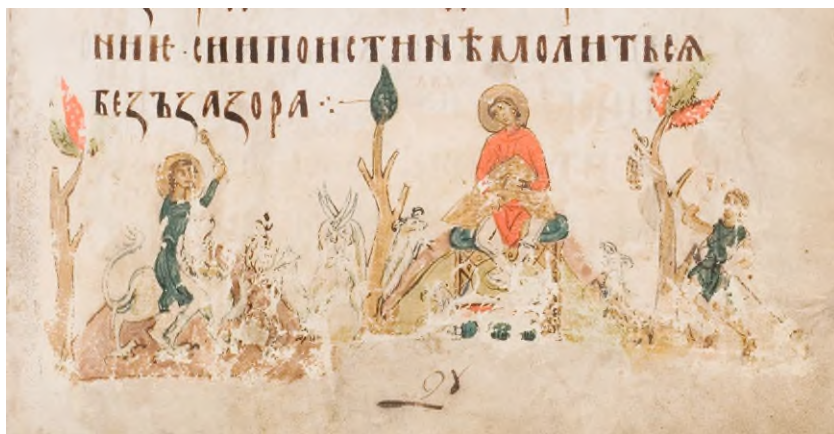 ниѥ· сии поистинѣ молитьсѧ
безъ зазора ⁘